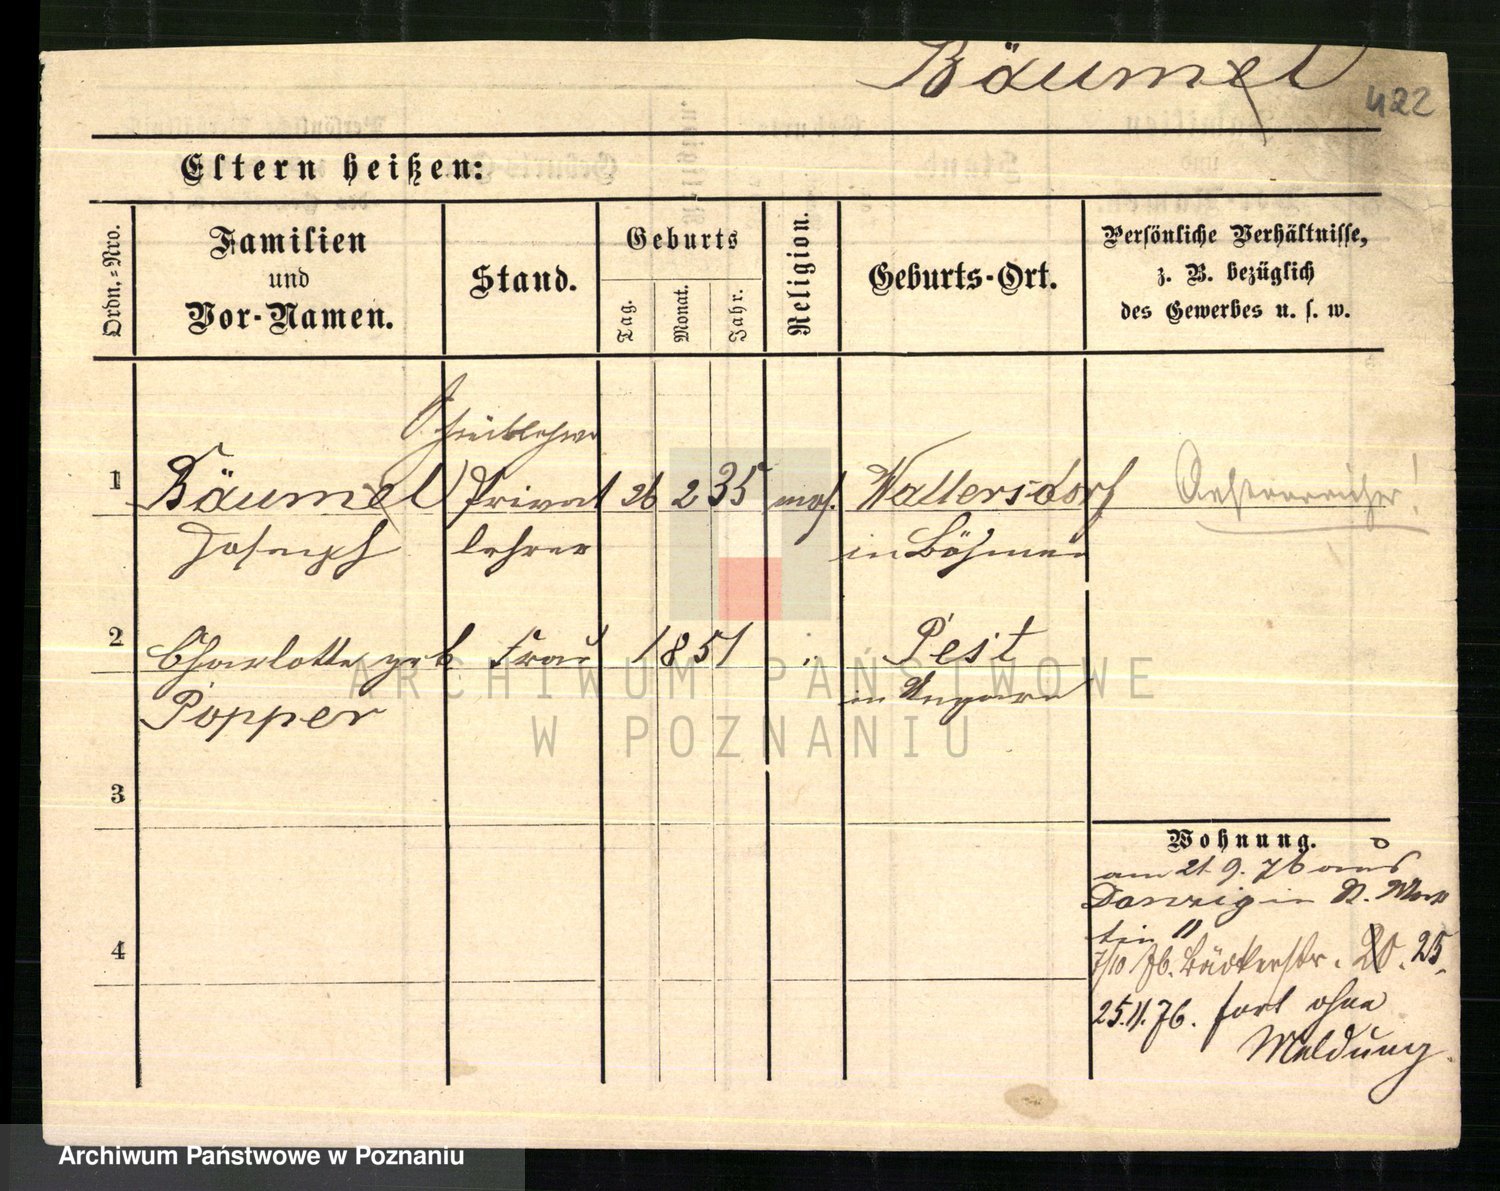 Bäumel
422
Eltern heißen:
Ordn.-Nro.
Familien
und
Vor-Namen.
Stand.
Geburts
Tag.
Monat.
Jahr.
Religion.
Geburts-Ort.
Persönliche Verhältnisse,
z. B. bezüglich
des Gewerbes u. s. w.
1
Bäumel Privat 26 2 35 mos. Wallersdorf Oesterreicher!
Joseph lehrer in Böhmen
2
Charlotte geb Frau 1851 " Pest
Popper in Ungarn
3
4
Wohnung.
am 21. 9. 76 aus
Danzig in St. Mar
tin 11
7/10 76. Bäckerstr. 20. 25.
25.11.76. fort ohne
Meldung.
ARCHIWUM PAŃSTWOWE
W POZNANIU
Archiwum Państwowe w Poznaniu